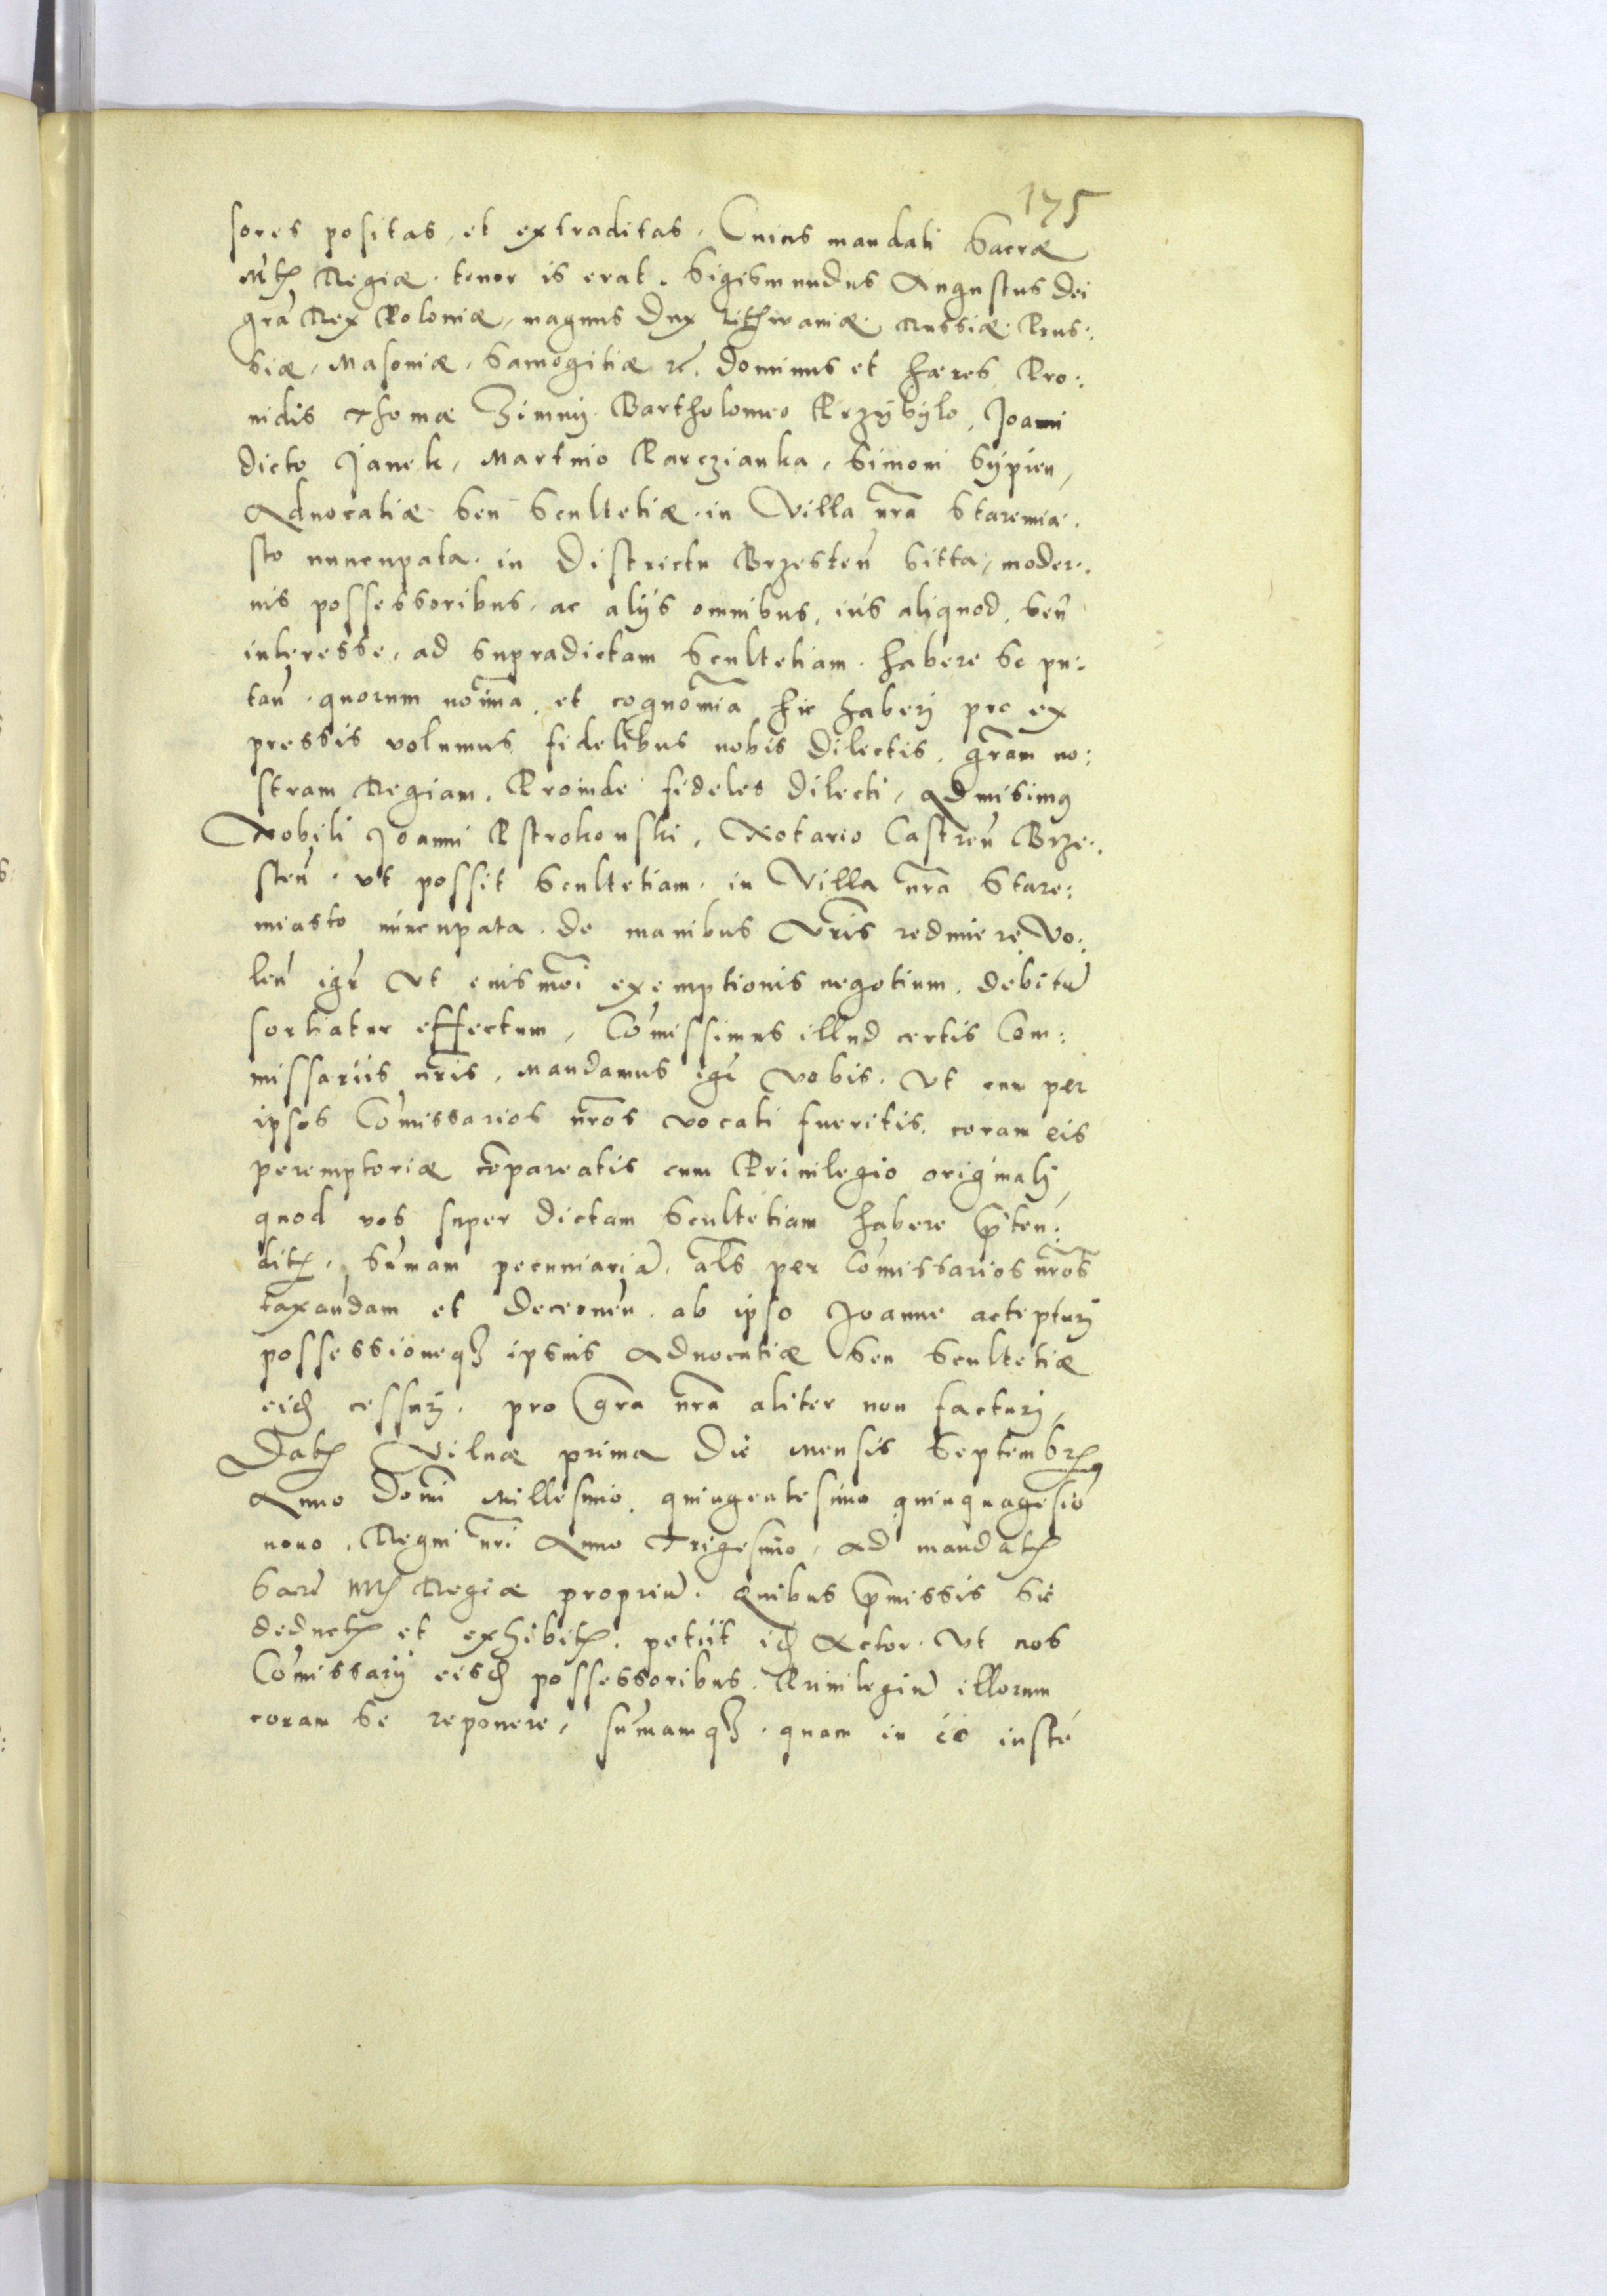 175
sores positas, et extraditas. Cuius mandati Sacræ
Mtis Regiæ tenor is erat. Sigismundus Augustus Dei
gra Rex Poloniæ, magnus Dux Lithwaniæ Russiæ Prus:
siæ, Masoniæ, Samogitiæ etc. Dominus et hæres Pro:
uidis Thomæ Zimny Bartholomeo Przybylo, Joanni
dicto Janek, Martino Parczianka, Simoni Sypien,
Aduocatiæ seu Scultetiæ in Villa nra Staremia:
sto nuncupata in Districtu Brzesten sitta, moder:
nis possessoribus, ac alijs omnibus, ius aliquod, seu
interesse, ad supradictam Scultetiam habere se pu:
tan. quorum noina, et cognomia hic haberj pro ex
pressis volumus fidelibus nobis dilectis, gram no:
stram Regiam. Proinde fideles dilecti, admisimus
Nobili Joanni Pstrokonski, Notario Castren Brze:
sten. vt possit Scultetiam in Villa nra Stare:
miasto nuncupata de manibus Vris redimere Vo:
len igr Vt eiusmoi exemptionis negotium, debitu
sortiatur effectum, Comissimus illud certis Com:
missariis nris, mandamus igr vobis. Vt cum per
ipsos Comissarios nros vocati fueritis, coram eis
peremptoriæ compareatis cum Priuilegio originalj,
quod vos super dictam Scultetiam habere pten:
ditis, Sumam pecuniaria, als per Comissarios nros
taxandam et decernen. ab ipso Joanne accepturj
possessioneqz ipsius Aduocatiæ seu Scultetiæ
eid cessurj. pro gra nra aliter non facturj,
Datis Vilnæ prima die mensis Septembris
Anno Domi Millesimo quingentesimo quinquagesio
nono. Regni nri Anno Trigesimo, ad mandatis
Sacre Mtis Regiæ propriu. Quibus pmissis sic
deductis et exhibitis. petiit id Actor. Vt nos
Comissarij eisd possessoribus. Priuilegiu illorum
coram se reponere, sumamqz. quam in eo iuste